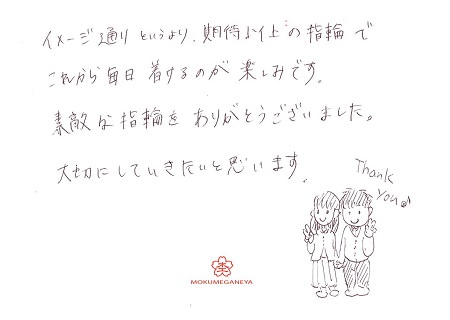 イメージ通りというより、期待以上の指輪で
これから毎日 着けるのが 楽しみです。
素敵な指輪を ありがとうございました。
大切にしていきたいと思います。
Thank
You♪
MOKUMEGANEYA